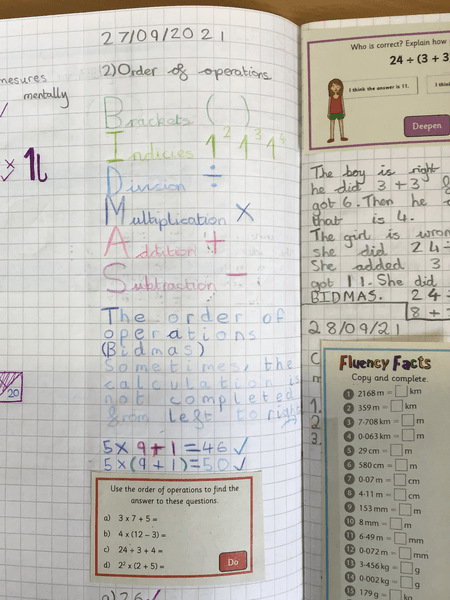 mesures
mentally
× 1
20
27/09/2021
2) Order of operations
Brackets ( )
Indicies 1² 1³ 1⁴
Division ÷
Multiplication ×
Addition +
Subtraction -
The order of
operations
(Bidmas)
Sometimes, the
calculation is
not completed
from left to right
5×9+1=46 ✓
5×(9+1)=50 ✓
Use the order of operations to find the
answer to these questions.
a) 3 x 7 + 5 =
b) 4 x (12 – 3) =
c) 24 ÷ 3 + 4 =
d) 2² x (2 + 5) =
Do
a) 26 ✓
Who is correct? Explain how
24 ÷ (3 + 3
I think the answer is 11.
I thin
Deepen
The boy is right
he did 3+3
got 6. Then he
that is 4.
The girl is wron
she did 24÷
She added 3
got 11. She did
BIDMAS. 24÷
8+
28/09/21
C
m
1.
2
3.
Fluency Facts
Copy and complete.
1 2168 m = km
2 359 m = km
3 7·708 km = m
4 0·063 km = m
5 29 cm = m
6 580 cm = m
7 0·07 m = cm
8 4·11 m = cm
9 153 mm = m
10 8 mm = m
11 6·49 m = mm
12 0·072 m = mm
13 3·456 kg = g
14 0·002 kg = g
15 179 g = k